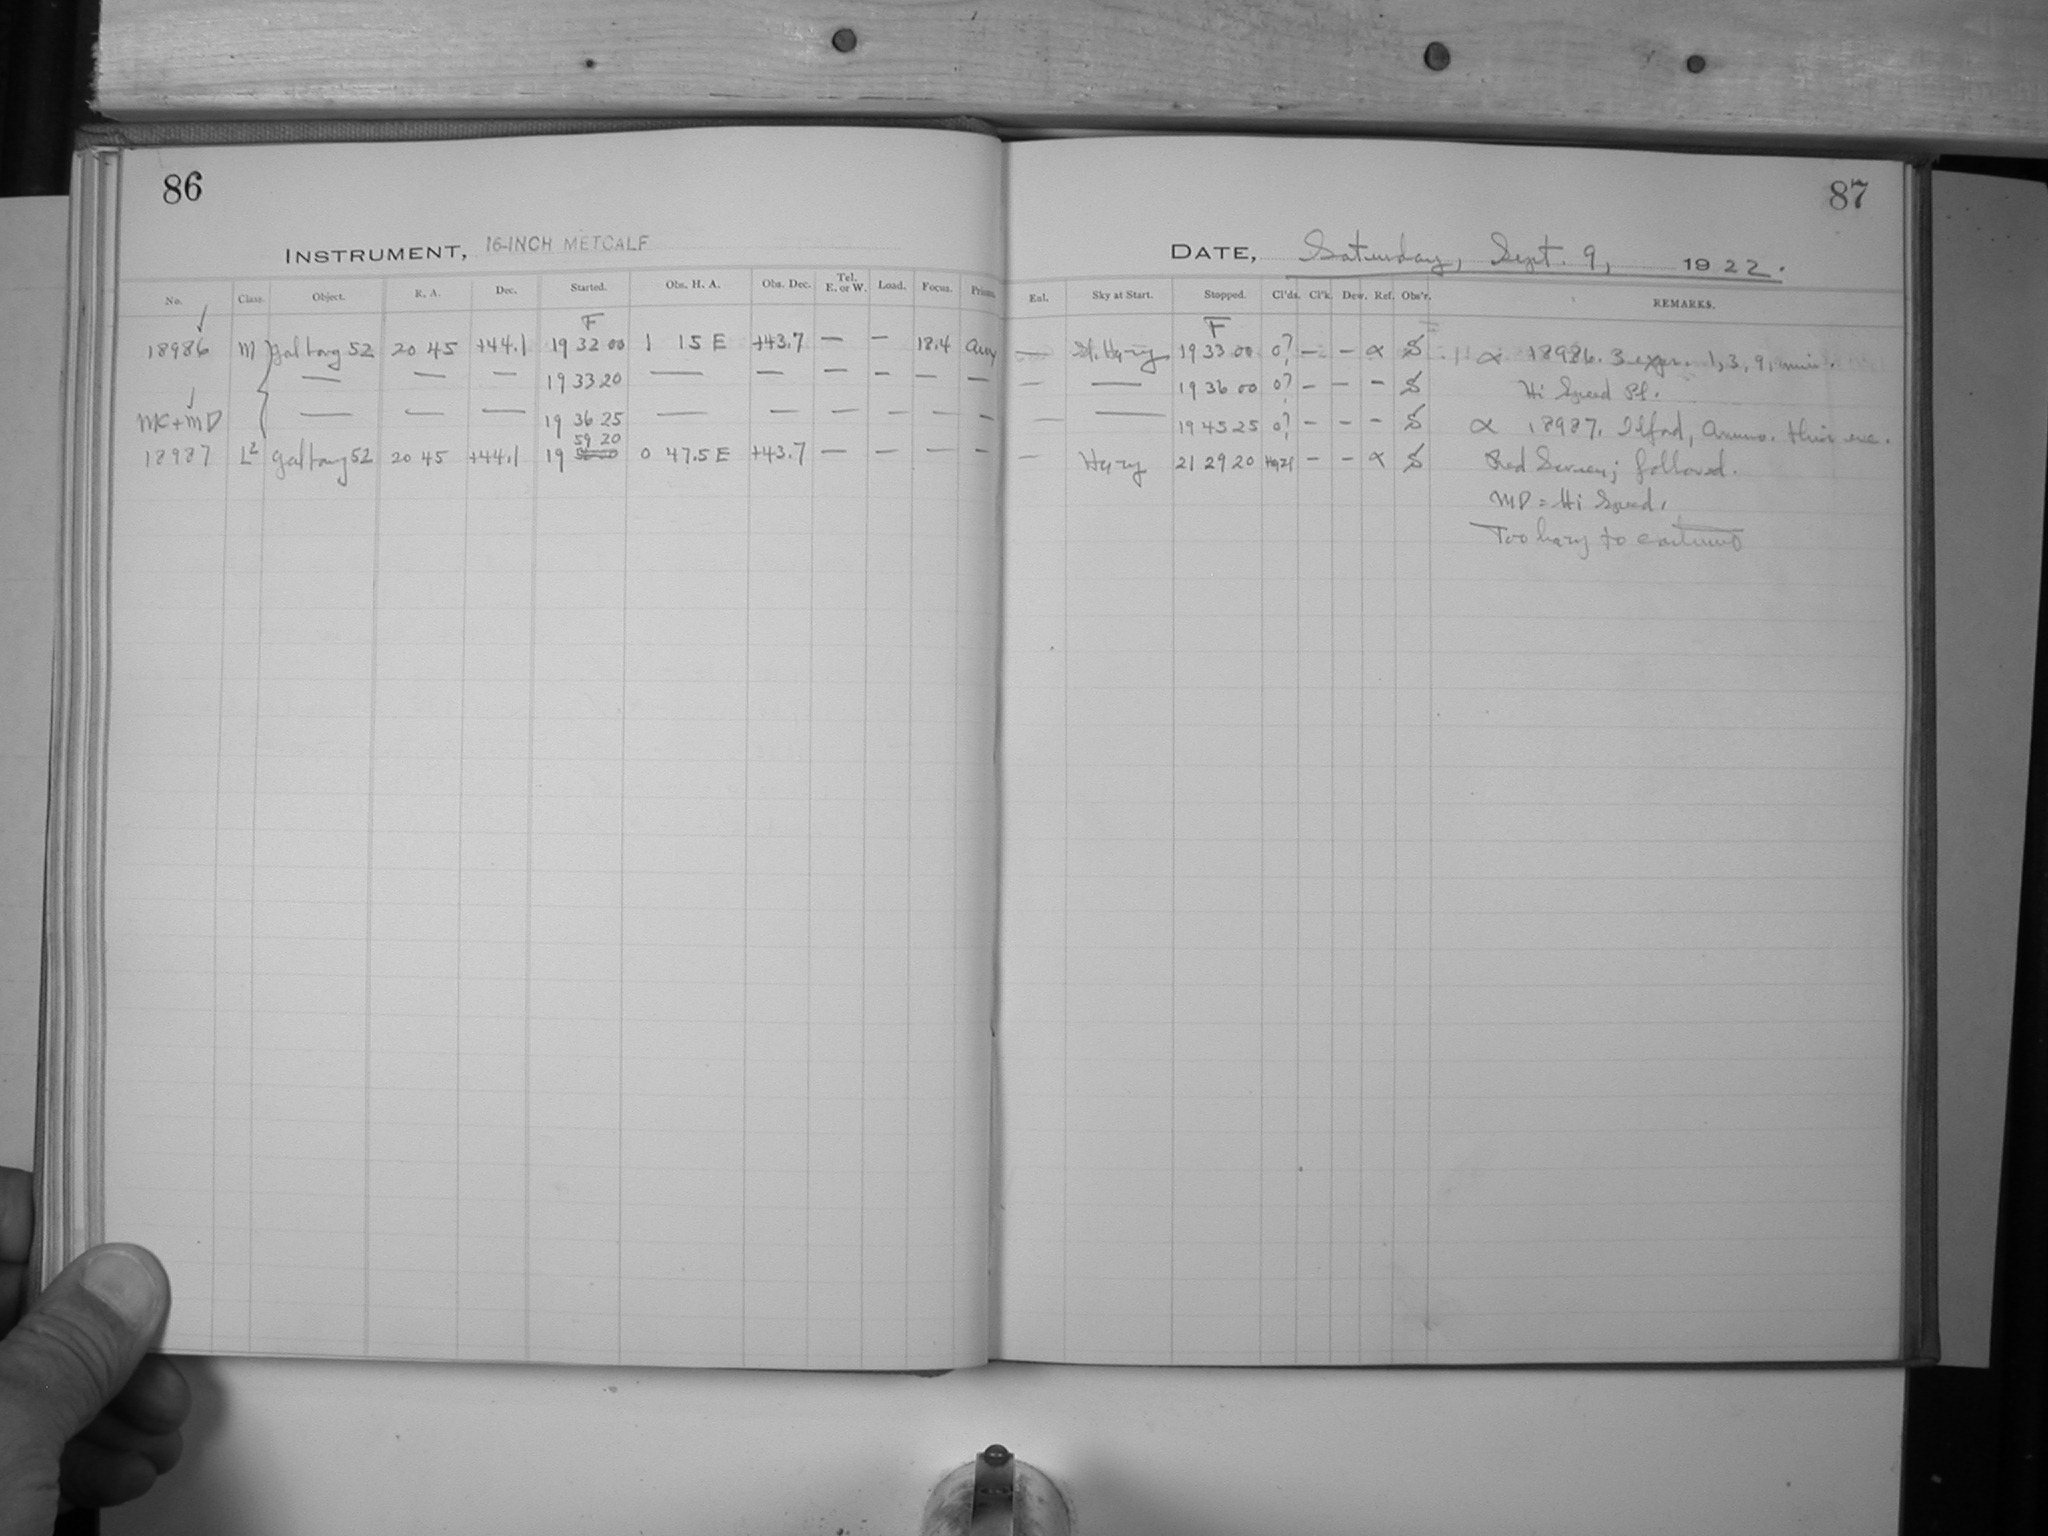 86
INSTRUMENT, 16-INCH METCALF
No. Class. Object. R. A. Dec. Started. Obs. H. A. Obs. Dec. Tel. E. or W. Load. Focus. Prism.
F
18986 M 52 20 45 +44.1 19 32 00 1 15 E +43.7 — — 18.4
— — — 19 33 20 — — — — — —
MC + MD — — — 19 36 25 — — — — — —
59 20
18987 L2 52 20 45 +44.1 19 0 47.5 E +43.7 — — — —
87
DATE, Saturday, Sept. 9, 1922.
Eal. Sky at Start. Stopped. Cl'ds. Cl'k. Dew. Ref. Obs'r. REMARKS.
F
— Sl. Hazy 19 33 00 0? — — α S α 18986. 3 expr. 1, 3, 9, min.
— — 19 36 00 0? — — — S Hi Speed Pl.
— — 19 45 25 0? — — — S α 18987. Ilford, Ammo. this eve.
— Hazy 21 29 20 Hazy — — α S Red Screen; followed.
MD = Hi Speed.
Too hazy to continue